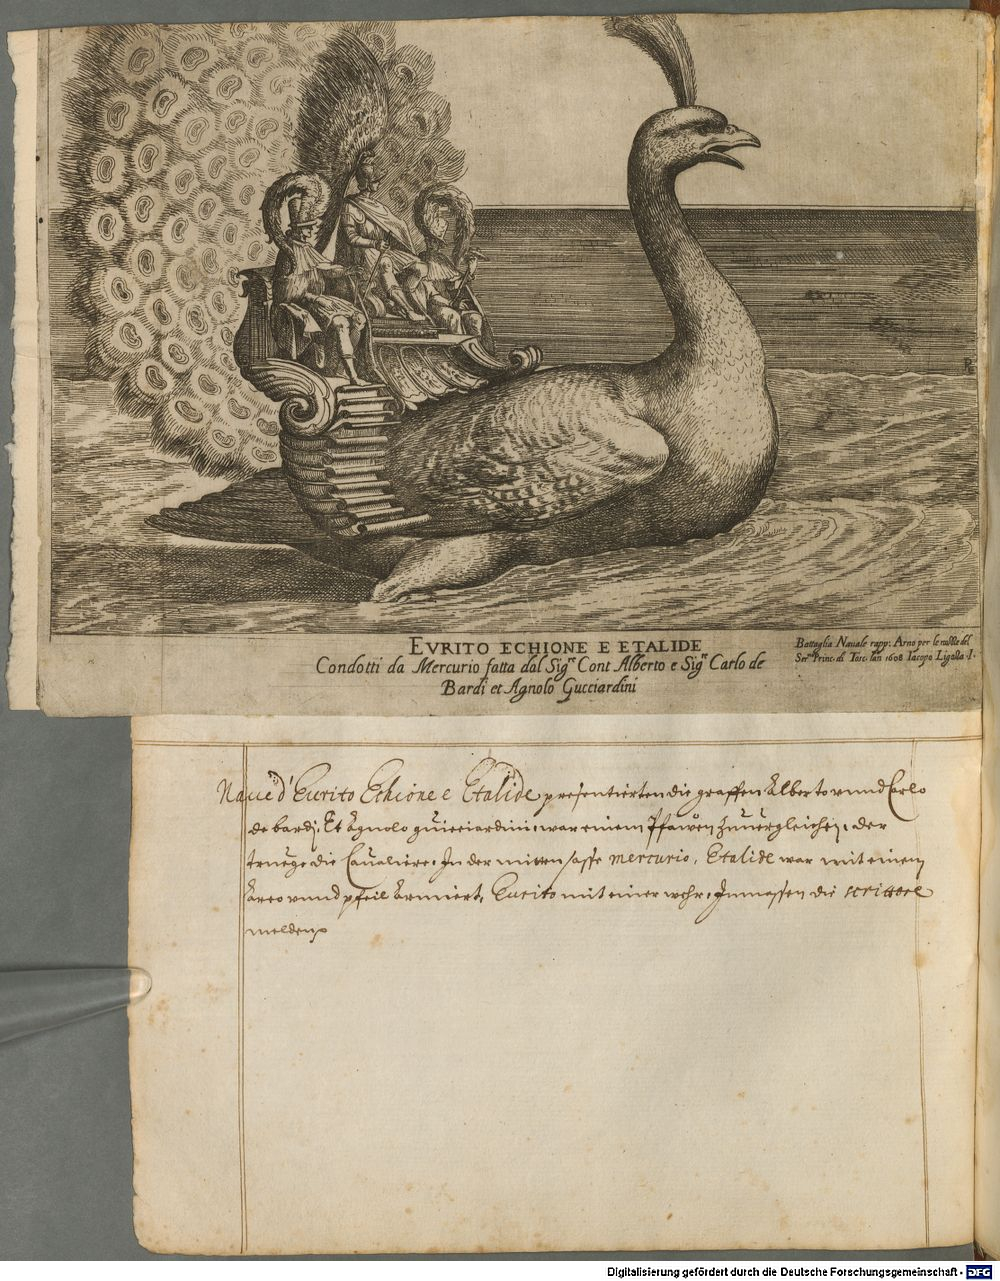 EVRITO ECHIONE E ETALIDE
Condotti da Mercurio fatta dal Sig.r Cont Alberto e Sig.r Carlo de
Bardi et Agnolo Gucciardini
Battaglia Nauale rapp: Arno per le del
Ser.mo Princ. di Tosc. lan 1608 Iacopo Ligozza I.
Naue d' Eurito Echione e Etalide presentierten die graffen Alberto vnnd Carlo
de bardj, Et Agnolo guicciardini, war einem Pfawen Zuuergleichen, der
truege die Caualiere, In der mitten sasse mercurio, Etalide war mit einem
Arco vnnd pfeil Armiert, Eurito mit einer wehr, Inmassen die scrittore
melden
Digitalisierung gefördert durch die Deutsche Forschungsgemeinschaft - DFG